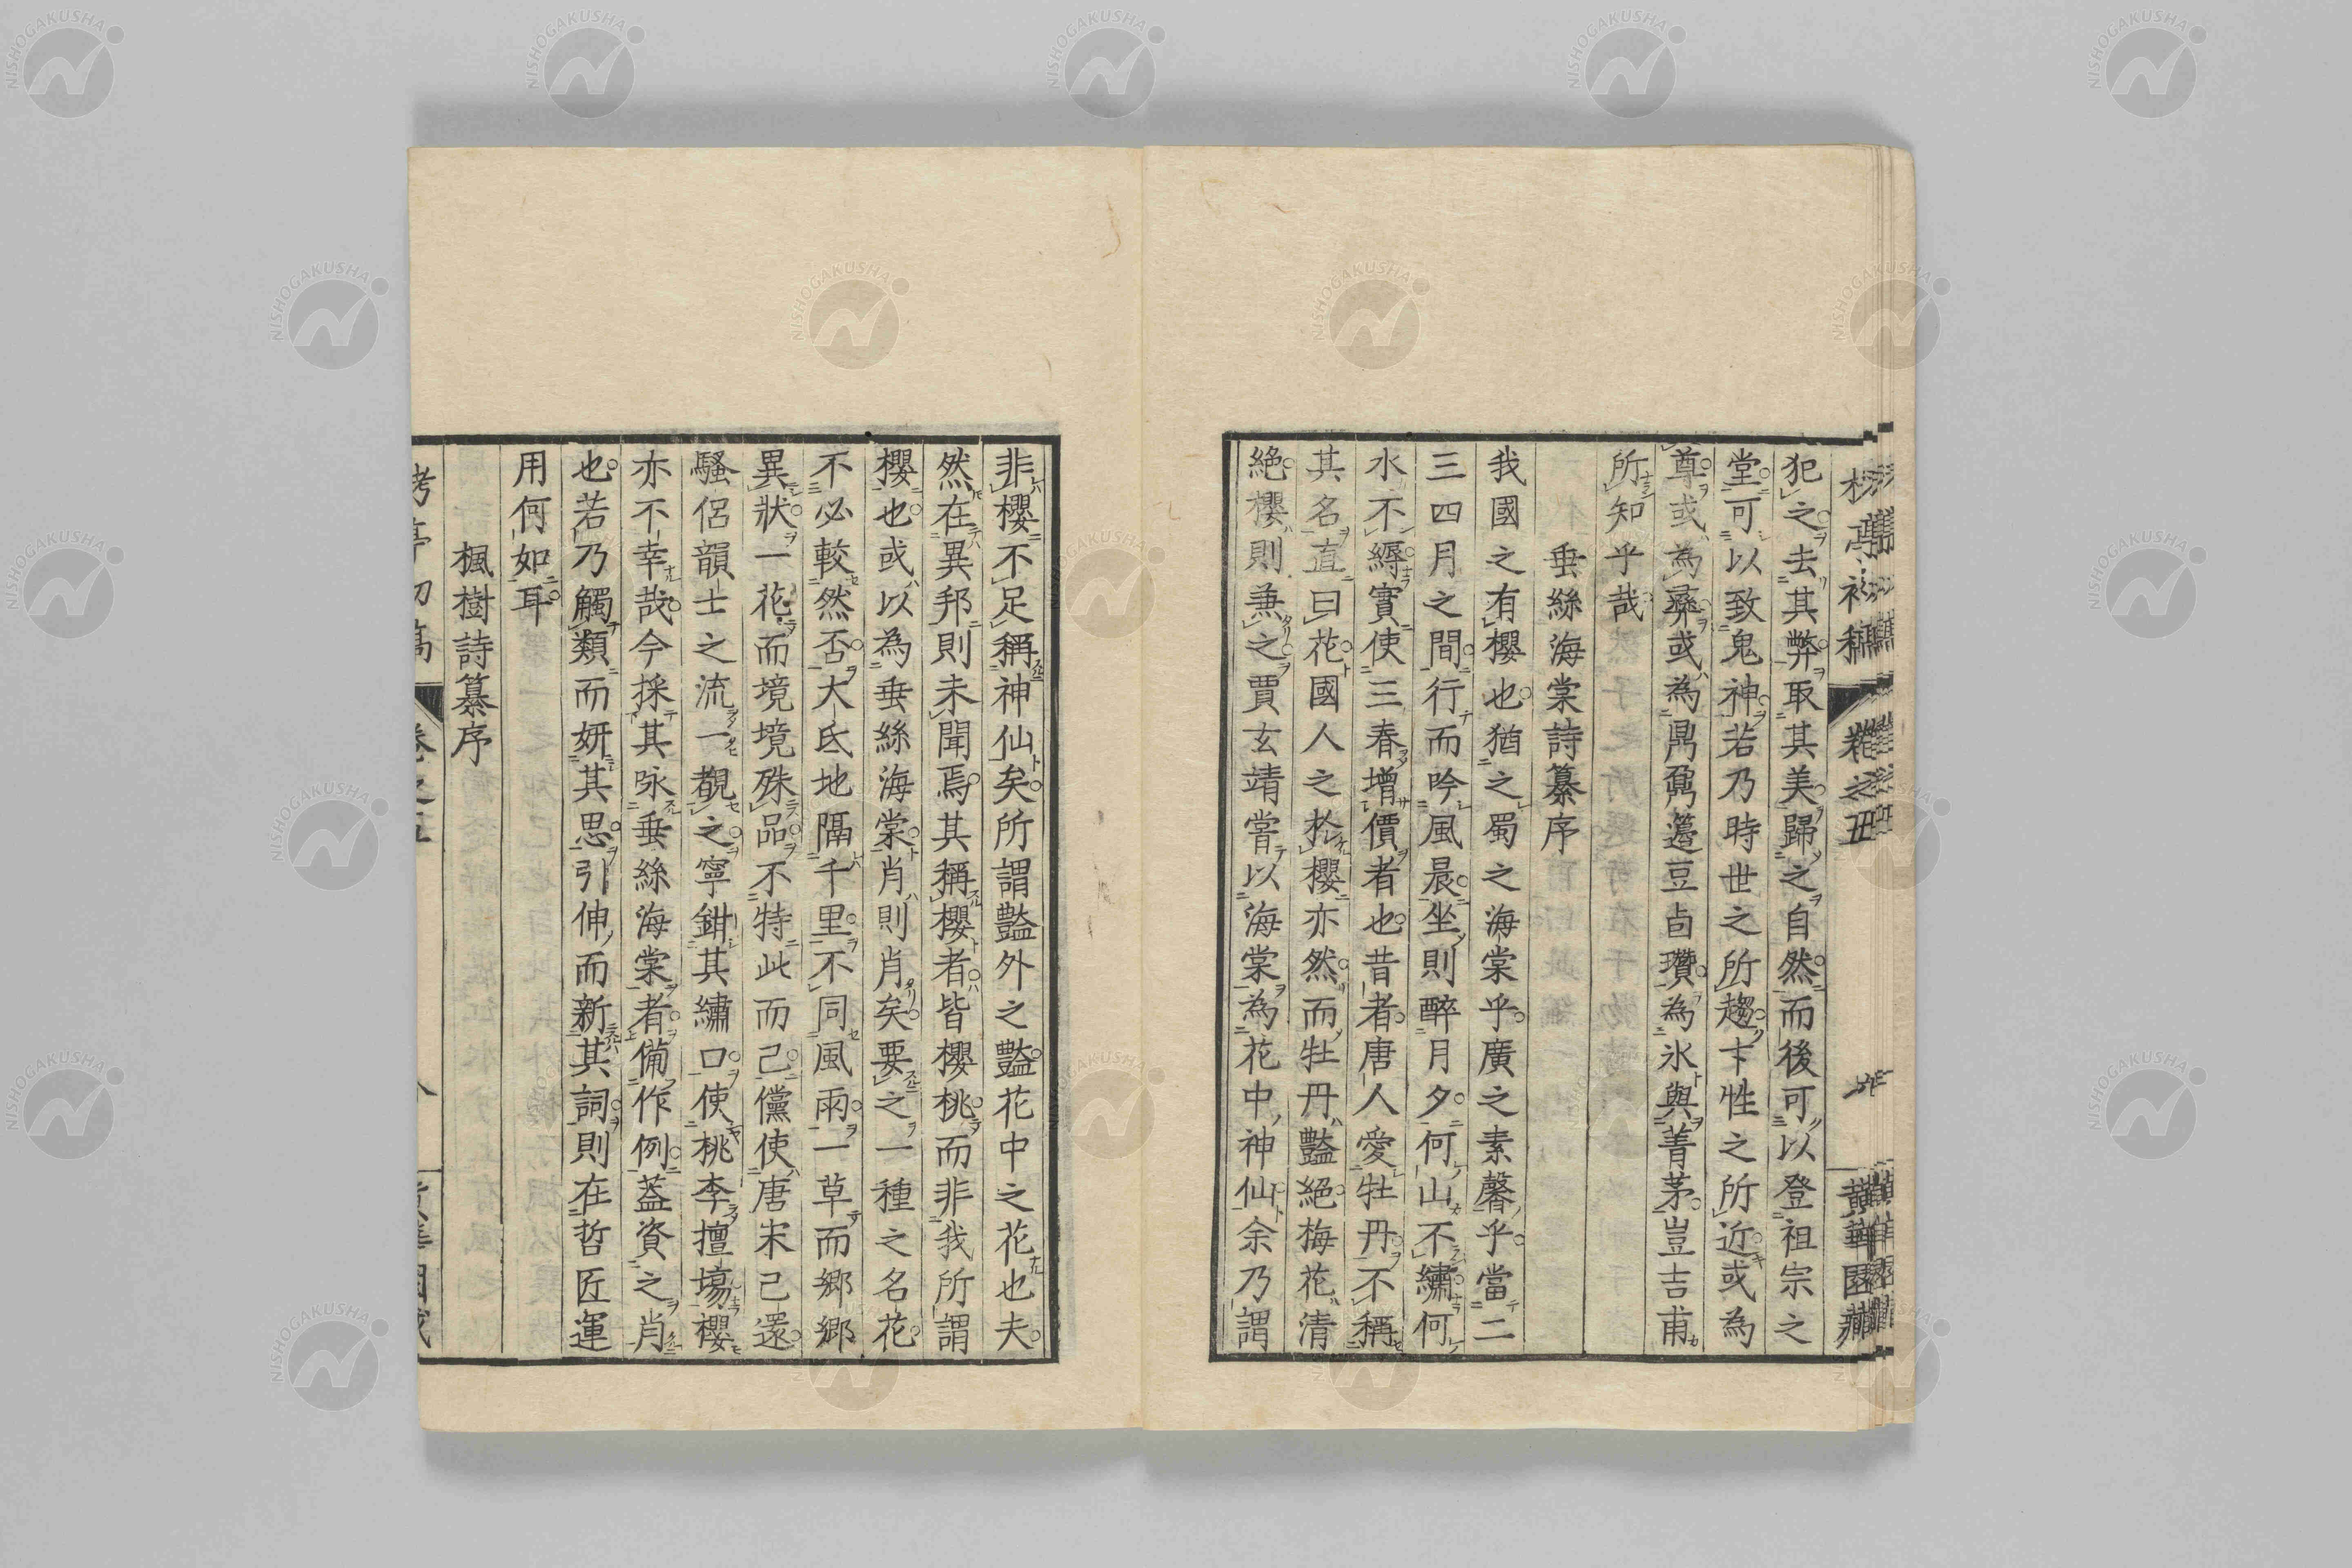 犯之去其弊取其美歸之自然而後可以登祖宗之
堂可以致鬼神若乃時世之所趨卞性之所近或為
尊或為彛或為鼎鼐籩豆卣瓚為氷與菁茅豈吉甫
所知乎哉
垂絲海棠詩纂序
我國之有櫻也猶之蜀之海棠乎廣之素馨乎當二
三四月之間行而吟風晨坐則醉月夕何山不繡何
水不縟實使三春增價者也昔者唐人愛牡丹不稱
其名直曰花國人之於櫻亦然而牡丹豔絕梅花清
絕櫻則兼之賈玄靖嘗以海棠為花中神仙余乃謂
非櫻不足稱神仙矣所謂豔外之豔花中之花也夫
然在異邦則未聞焉其稱櫻者皆櫻桃而非我所謂
櫻也或以為垂絲海棠肖則肖矣要之一種之名花
不必較然否大氐地隔千里不同風雨一草而鄉鄉
異狀一花而境境殊品不特此而已儻使唐宋已還
騷侶韻士之流一覩之寧鉗其繡口使桃李擅場櫻
亦不幸哉今採其咏垂絲海棠者備作例蓋資之肖
也若乃觸類而妍其思引伸而新其詞則在哲匠運
用何如耳
楓樹詩纂序
NISHOGAKUSHA